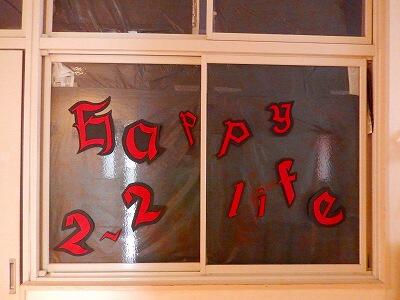 Happy
2-2 life